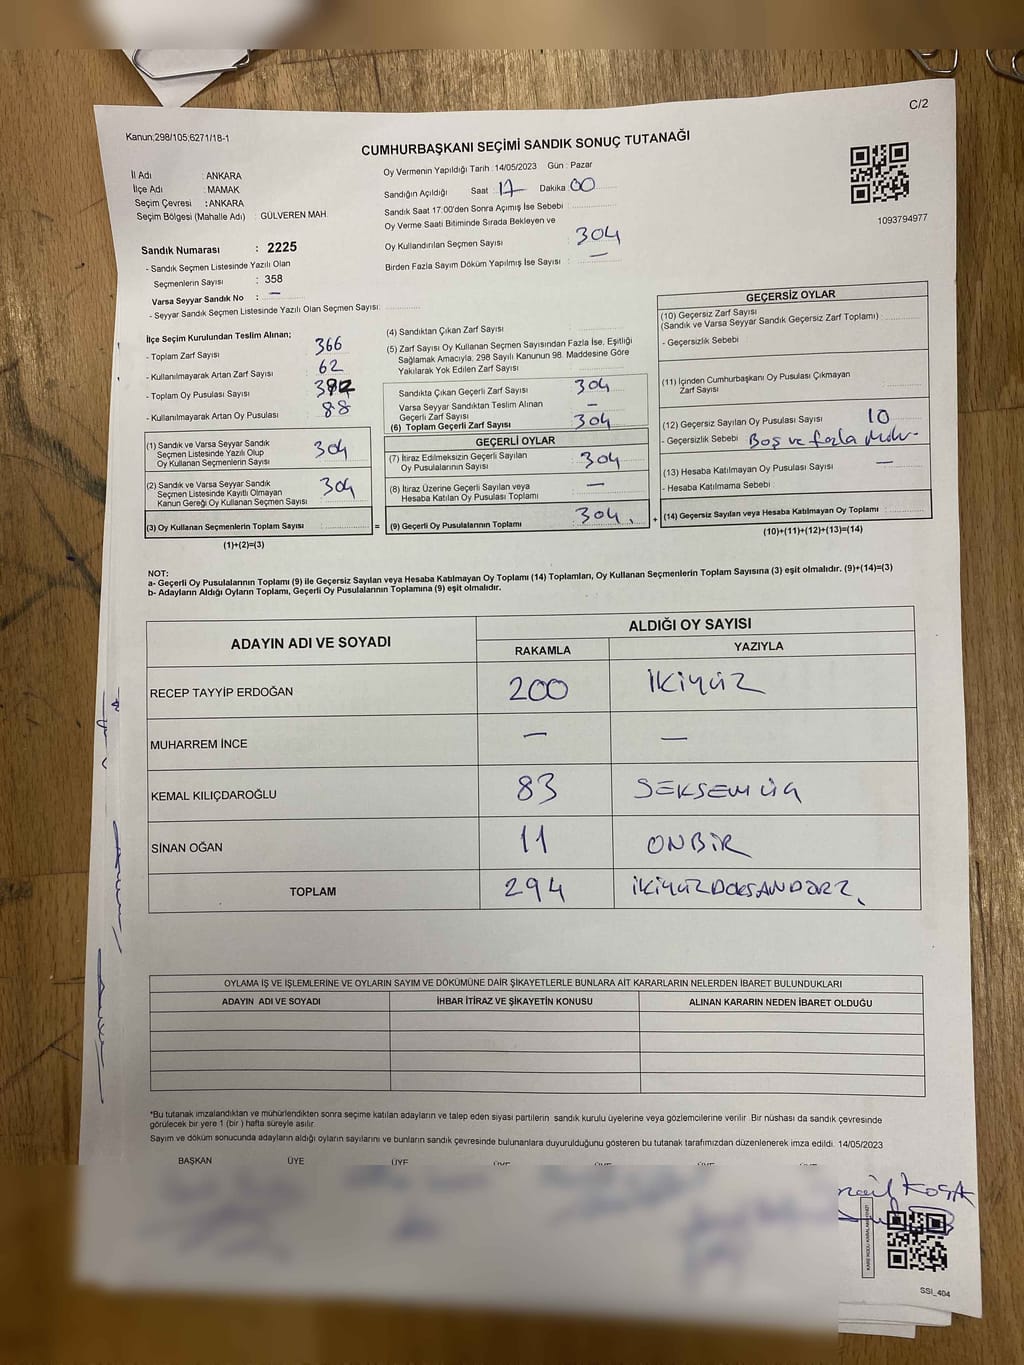 C/2
Kanun;298/105,6271/18-1
CUMHURBAŞKANI SEÇİMİ SANDIK SONUÇ TUTANAĞI
İl Adı : ANKARA
İlçe Adı : MAMAK
Seçim Çevresi : ANKARA
Seçim Bölgesi (Mahalle Adı) : GÜLVEREN MAH.
Oy Vermenin Yapıldığı Tarih : 14/05/2023 Gün : Pazar
Sandığın Açıldığı Saat : 17 Dakika 00
Sandık Saat 17:00'den Sonra Açımış İse Sebebi :
Oy Verme Saati Bitiminde Sırada Bekleyen ve
Oy Kullandırılan Seçmen Sayısı : 304
Birden Fazla Sayım Döküm Yapılmış İse Sayısı : —
1093794977
Sandık Numarası : 2225
- Sandık Seçmen Listesinde Yazılı Olan
Seçmenlerin Sayısı : 358
Varsa Seyyar Sandık No : —
- Seyyar Sandık Seçmen Listesinde Yazılı Olan Seçmen Sayısı:
İlçe Seçim Kurulundan Teslim Alınan;
- Toplam Zarf Sayısı 366
- Kullanılmayarak Artan Zarf Sayısı 62
- Toplam Oy Pusulası Sayısı
- Kullanılmayarak Artan Oy Pusulası 88
(1) Sandık ve Varsa Seyyar Sandık
Seçmen Listesinde Yazılı Olup
Oy Kullanan Seçmenlerin Sayısı 304
(2) Sandık ve Varsa Seyyar Sandık
Seçmen Listesinde Kayıtlı Olmayan
Kanun Gereği Oy Kullanan Seçmen Sayısı 304
(3) Oy Kullanan Seçmenlerin Toplam Sayısı =
(1)+(2)=(3)
(4) Sandıktan Çıkan Zarf Sayısı
(5) Zarf Sayısı Oy Kullanan Seçmen Sayısından Fazla İse, Eşitliği
Sağlamak Amacıyla; 298 Sayılı Kanunun 98. Maddesine Göre
Yakılarak Yok Edilen Zarf Sayısı
Sandıkta Çıkan Geçerli Zarf Sayısı 304
Varsa Seyyar Sandıktan Teslim Alınan
Geçerli Zarf Sayısı —
(6) Toplam Geçerli Zarf Sayısı 304
GEÇERLİ OYLAR
(7) İtiraz Edilmeksizin Geçerli Sayılan
Oy Pusulalarının Sayısı 304
(8) İtiraz Üzerine Geçerli Sayılan veya
Hesaba Katılan Oy Pusulası Toplamı —
(9) Geçerli Oy Pusulalarının Toplamı 304 +
GEÇERSİZ OYLAR
(10) Geçersiz Zarf Sayısı
(Sandık ve Varsa Seyyar Sandık Geçersiz Zarf Toplamı)
- Geçersizlik Sebebi
(11) İçinden Cumhurbaşkanı Oy Pusulası Çıkmayan
Zarf Sayısı
(12) Geçersiz Sayılan Oy Pusulası Sayısı 10
- Geçersizlik Sebebi Boş ve fazla mühür
(13) Hesaba Katılmayan Oy Pusulası Sayısı —
- Hesaba Katılmama Sebebi
(14) Geçersiz Sayılan veya Hesaba Katılmayan Oy Toplamı
(10)+(11)+(12)+(13)=(14)
NOT:
a- Geçerli Oy Pusulalarının Toplamı (9) ile Geçersiz Sayılan veya Hesaba Katılmayan Oy Toplamı (14) Toplamları, Oy Kullanan Seçmenlerin Toplam Sayısına (3) eşit olmalıdır. (9)+(14)=(3)
b- Adayların Aldığı Oyların Toplamı, Geçerli Oy Pusulalarının Toplamına (9) eşit olmalıdır.
ADAYIN ADI VE SOYADI ALDIĞI OY SAYISI
RAKAMLA YAZIYLA
RECEP TAYYİP ERDOĞAN 200 İKİYÜZ
MUHARREM İNCE — —
KEMAL KILIÇDAROĞLU 83 SEKSENÜÇ
SİNAN OĞAN 11 ONBİR
TOPLAM 294 İKİYÜZDOKSANDÖRT
OYLAMA İŞ VE İŞLEMLERİNE VE OYLARIN SAYIM VE DÖKÜMÜNE DAİR ŞİKAYETLERLE BUNLARA AİT KARARLARIN NELERDEN İBARET BULUNDUKLARI
ADAYIN ADI VE SOYADI İHBAR İTİRAZ VE ŞİKAYETİN KONUSU ALINAN KARARIN NEDEN İBARET OLDUĞU
*Bu tutanak imzalandıktan ve mühürlendikten sonra seçime katılan adayların ve talep eden siyasi partilerin sandık kurulu üyelerine veya gözlemcilerine verilir. Bir nüshası da sandık çevresinde
görülecek bir yere 1 (bir ) hafta süreyle asılır.
Sayım ve döküm sonucunda adayların aldığı oyların sayılarını ve bunların sandık çevresinde bulunanlara duyurulduğunu gösteren bu tutanak tarafımızdan düzenlenerek imza edildi. 14/05/2023
BAŞKAN ÜYE ÜYE ÜYE ÜYE ÜYE ÜYE
SSI_404